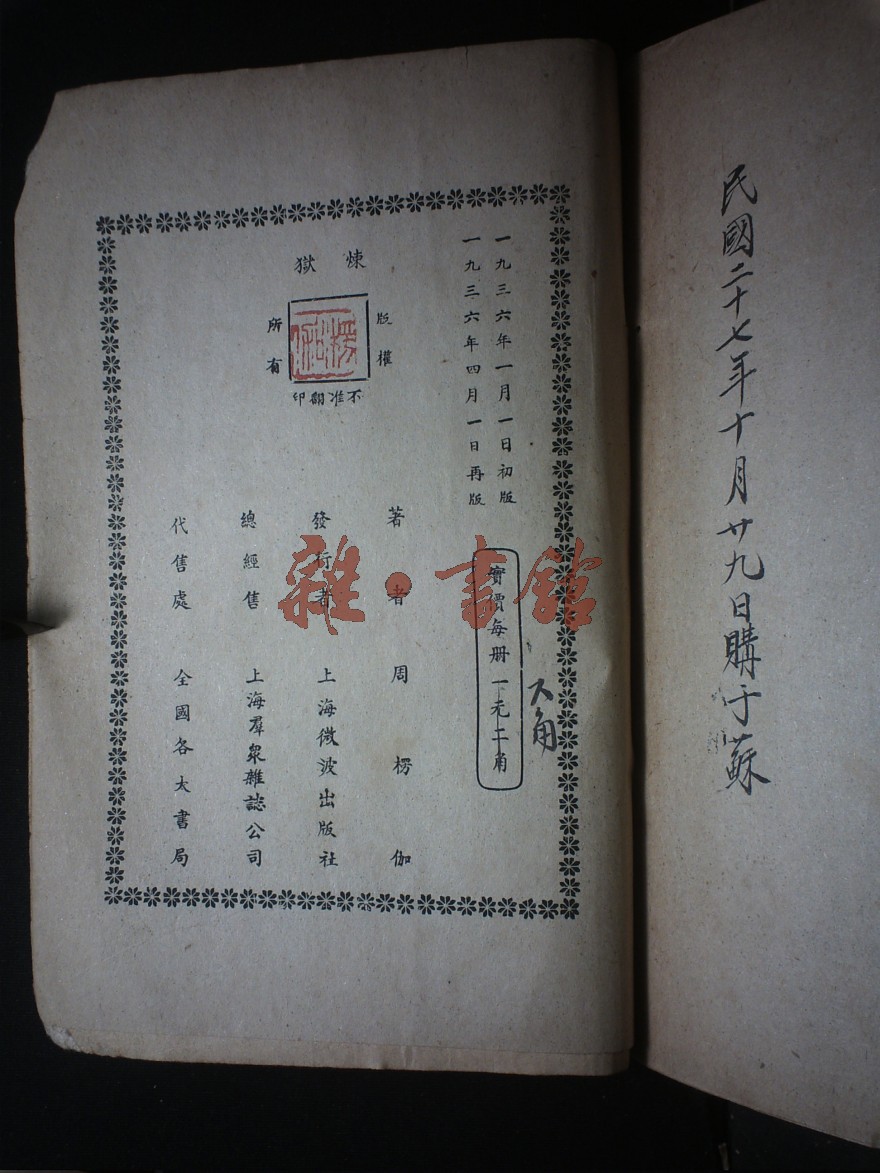 民國二十七年十月廿九日購于蘇
一九三六年一月一日初版
一九三六年四月一日再版
煉獄
版權
所有
不准翻印
角
實價每册一元二角
著者周楞伽
發行者 上海微波出版社
總經售 上海羣衆雜誌公司
代售處 全國各大書局
雜·書館